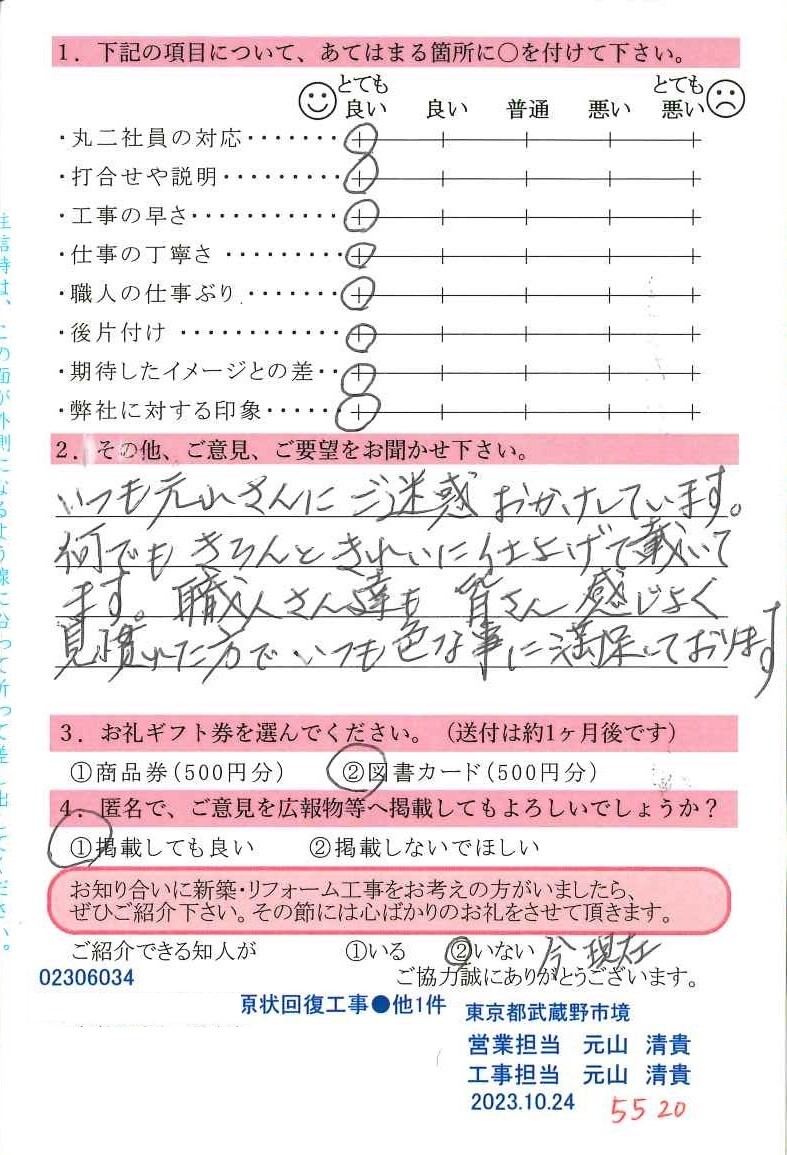 1. 下記の項目について、あてはまる箇所に○を付けて下さい。
とても良い 良い 普通 悪い とても悪い
・丸二社員の対応・・・・・・・
・打合せや説明・・・・・・・・・
・工事の早さ・・・・・・・・・・・
・仕事の丁寧さ・・・・・・・・・
・職人の仕事ぶり・・・・・・・
・後片付け・・・・・・・・・・・・
・期待したイメージとの差・・
・弊社に対する印象・・・・・
2. その他、ご意見、ご要望をお聞かせ下さい。
いつも元山さんにご迷惑おかけしています。
何でもきちんときれいに仕上げて戴いて
ます。職人さん達も皆さん感じよく
見慣れた方でいつも色な事に満足しております
3. お礼ギフト券を選んでください。(送付は約1ヶ月後です)
①商品券(500円分) ②図書カード(500円分)
4. 匿名で、ご意見を広報物等へ掲載してもよろしいでしょうか?
①掲載しても良い ②掲載しないでほしい
お知り合いに新築・リフォーム工事をお考えの方がいましたら、
ぜひご紹介下さい。その節には心ばかりのお礼をさせて頂きます。
ご紹介できる知人が ①いる ②いない 今現在
ご協力誠にありがとうございます。
02306034
原状回復工事●他1件
東京都武蔵野市境
営業担当 元山 清貴
工事担当 元山 清貴
2023.10.24
5520